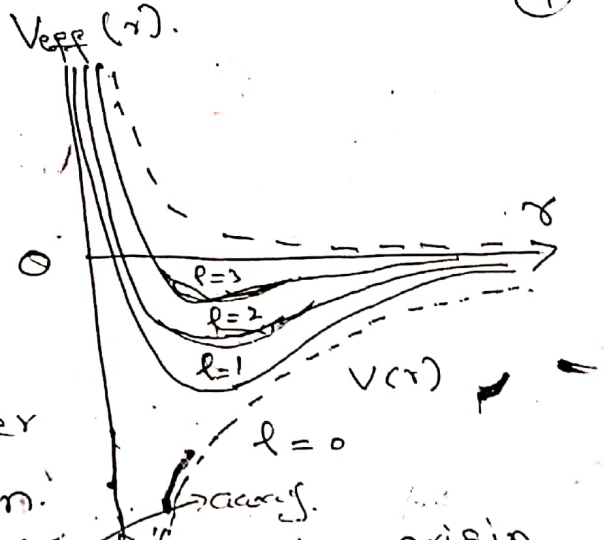 1
V_eff (r).
r
0
l=3
l=2
l=1
V(r)
er
l = 0
n.
origin